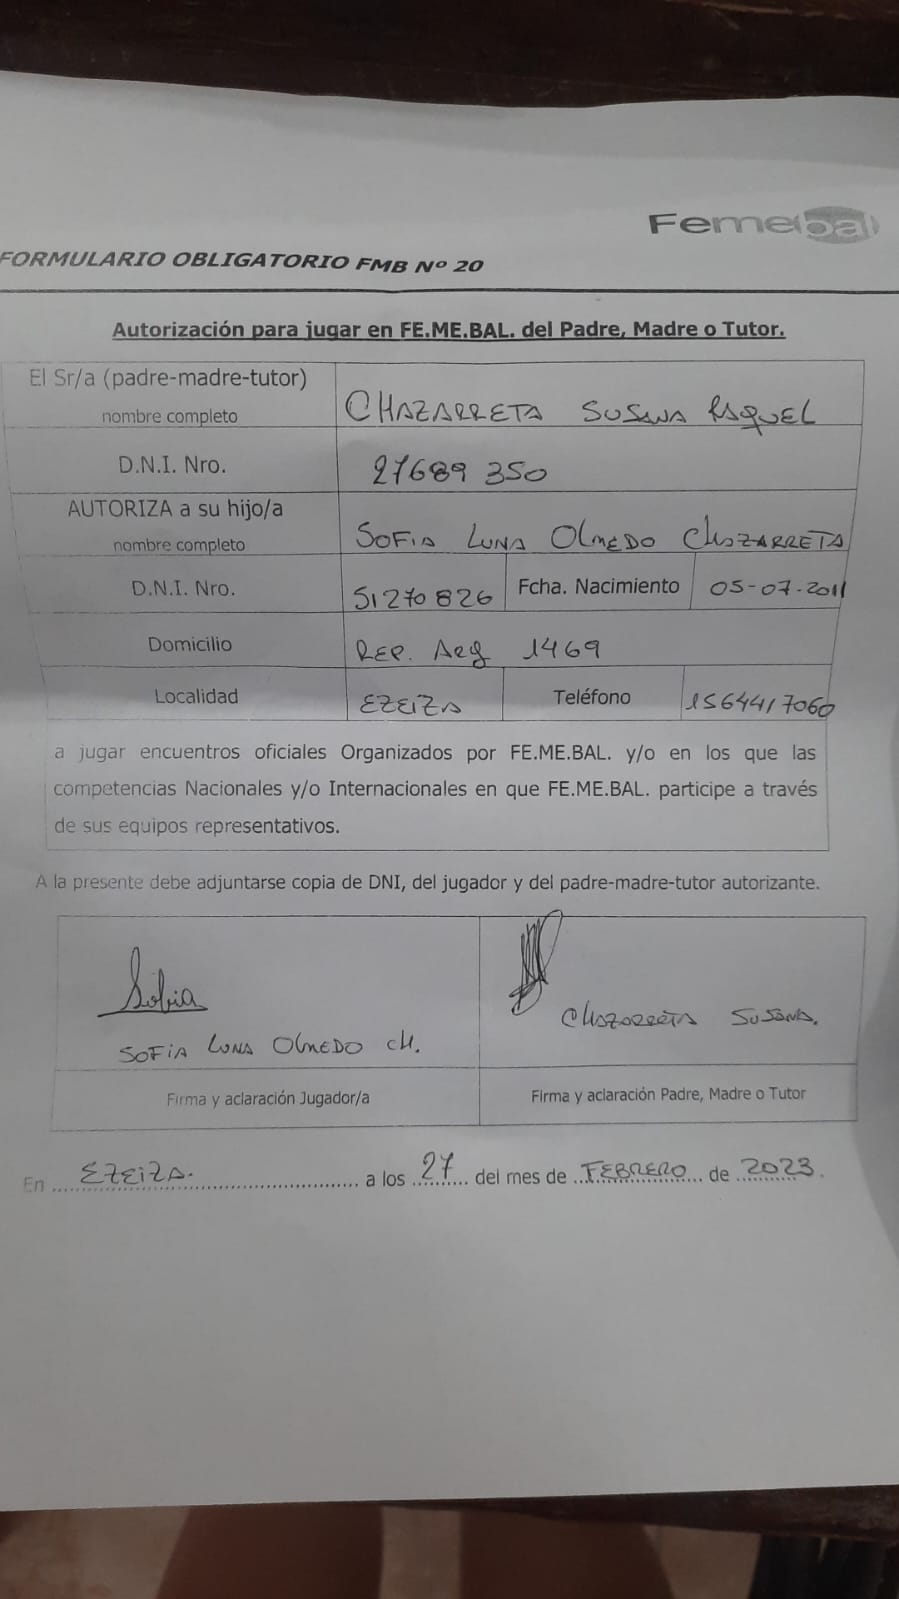 Femebal
FORMULARIO OBLIGATORIO FMB Nº 20
Autorización para jugar en FE.ME.BAL. del Padre, Madre o Tutor.
El Sr/a (padre-madre-tutor)
nombre completo
CHAZARRETA SUSANA RAQUEL
D.N.I. Nro. 27689 350
AUTORIZA a su hijo/a
nombre completo
SOFIA LUNA OLMEDO CHAZARRETA
D.N.I. Nro. 51270826 Fcha. Nacimiento 05-07-2011
Domicilio REP. Arg 1469
Localidad EZEIZA Teléfono 1564417060
a jugar encuentros oficiales Organizados por FE.ME.BAL. y/o en los que las
competencias Nacionales y/o Internacionales en que FE.ME.BAL. participe a través
de sus equipos representativos.
A la presente debe adjuntarse copia de DNI, del jugador y del padre-madre-tutor autorizante.
Sofia
SOFIA LUNA OLMEDO CH.
CHAZARRETA SUSANA.
Firma y aclaración Jugador/a
Firma y aclaración Padre, Madre o Tutor
En EZEIZA. a los 27 del mes de FEBRERO de 2023.